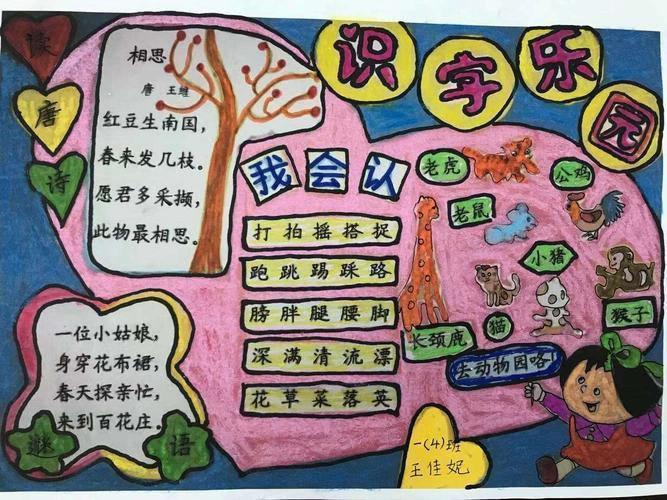 识字乐园
读唐诗
相思
唐 王维
红豆生南国，
春来发几枝。
愿君多采撷，
此物最相思。
我会认
打拍摇搭捉
跑跳踢踩路
膀胖腿腰脚
深满清流漂
花草菜落英
老虎
公鸡
老鼠
小猪
猴子
长颈鹿
猫
去动物园咯！
一位小姑娘，
身穿花布裙，
春天探亲忙，
来到百花庄。
谜语
一(4)班
王佳妮